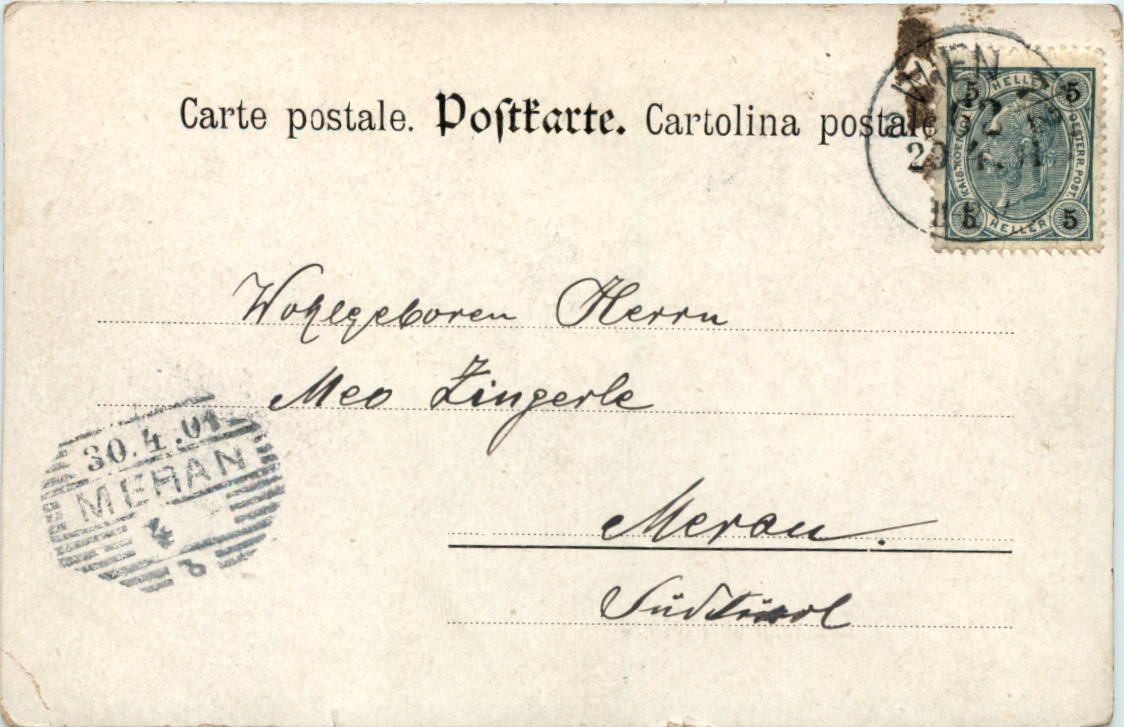 Carte postale. Postkarte. Cartolina postale
WIEN
62
29.4.01
5 HELLER 5
KAIS. KOENIGL. OESTERR. POST.
5 HELLER 5
Wohlgeboren Herrn
Meo Zingerle
30.4.01
MERAN
4
Meran.
Südtirol